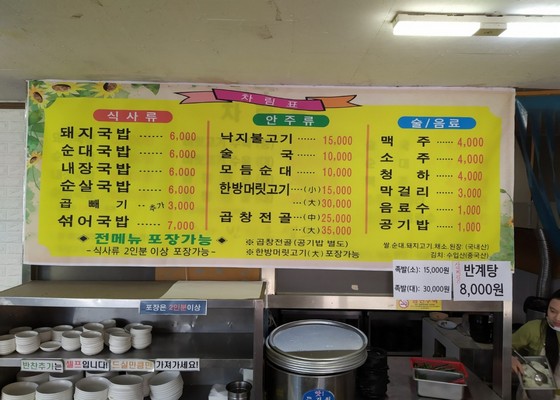 차림표
식사류
돼지국밥 ...... 6.000
순대국밥 ...... 6.000
내장국밥 ...... 6.000
순살국밥 ...... 6.000
곱빼기 .. 추가 3.000
섞어국밥 ...... 7.000
◈ 전메뉴 포장가능 ◈
-식사류 2인분 이상 포장가능-
안주류
낙지불고기 ...... 15,000
술국 ...... 10,000
모듬순대 ...... 10,000
한방머릿고기 ...(小)15,000
...(大)30,000
곱창전골 ...(中)25,000
...(大)35,000
※곱창전골(공기밥 별도)
※한방머릿고기(大)포장가능
술/음료
맥주 ...... 4,000
소주 ...... 4,000
청하 ...... 4,000
막걸리 ...... 3,000
음료수 ...... 1,000
공기밥 ...... 1,000
쌀.순대.돼지고기.채소.된장 (국내산)
김치: 수입산(중국산)
족발(소): 15,000원
족발(대): 30,000원
반계탕
8,000원
포장은 2인분이상
반찬추가는 셀프입니다! 드실만큼만 가져가세요!